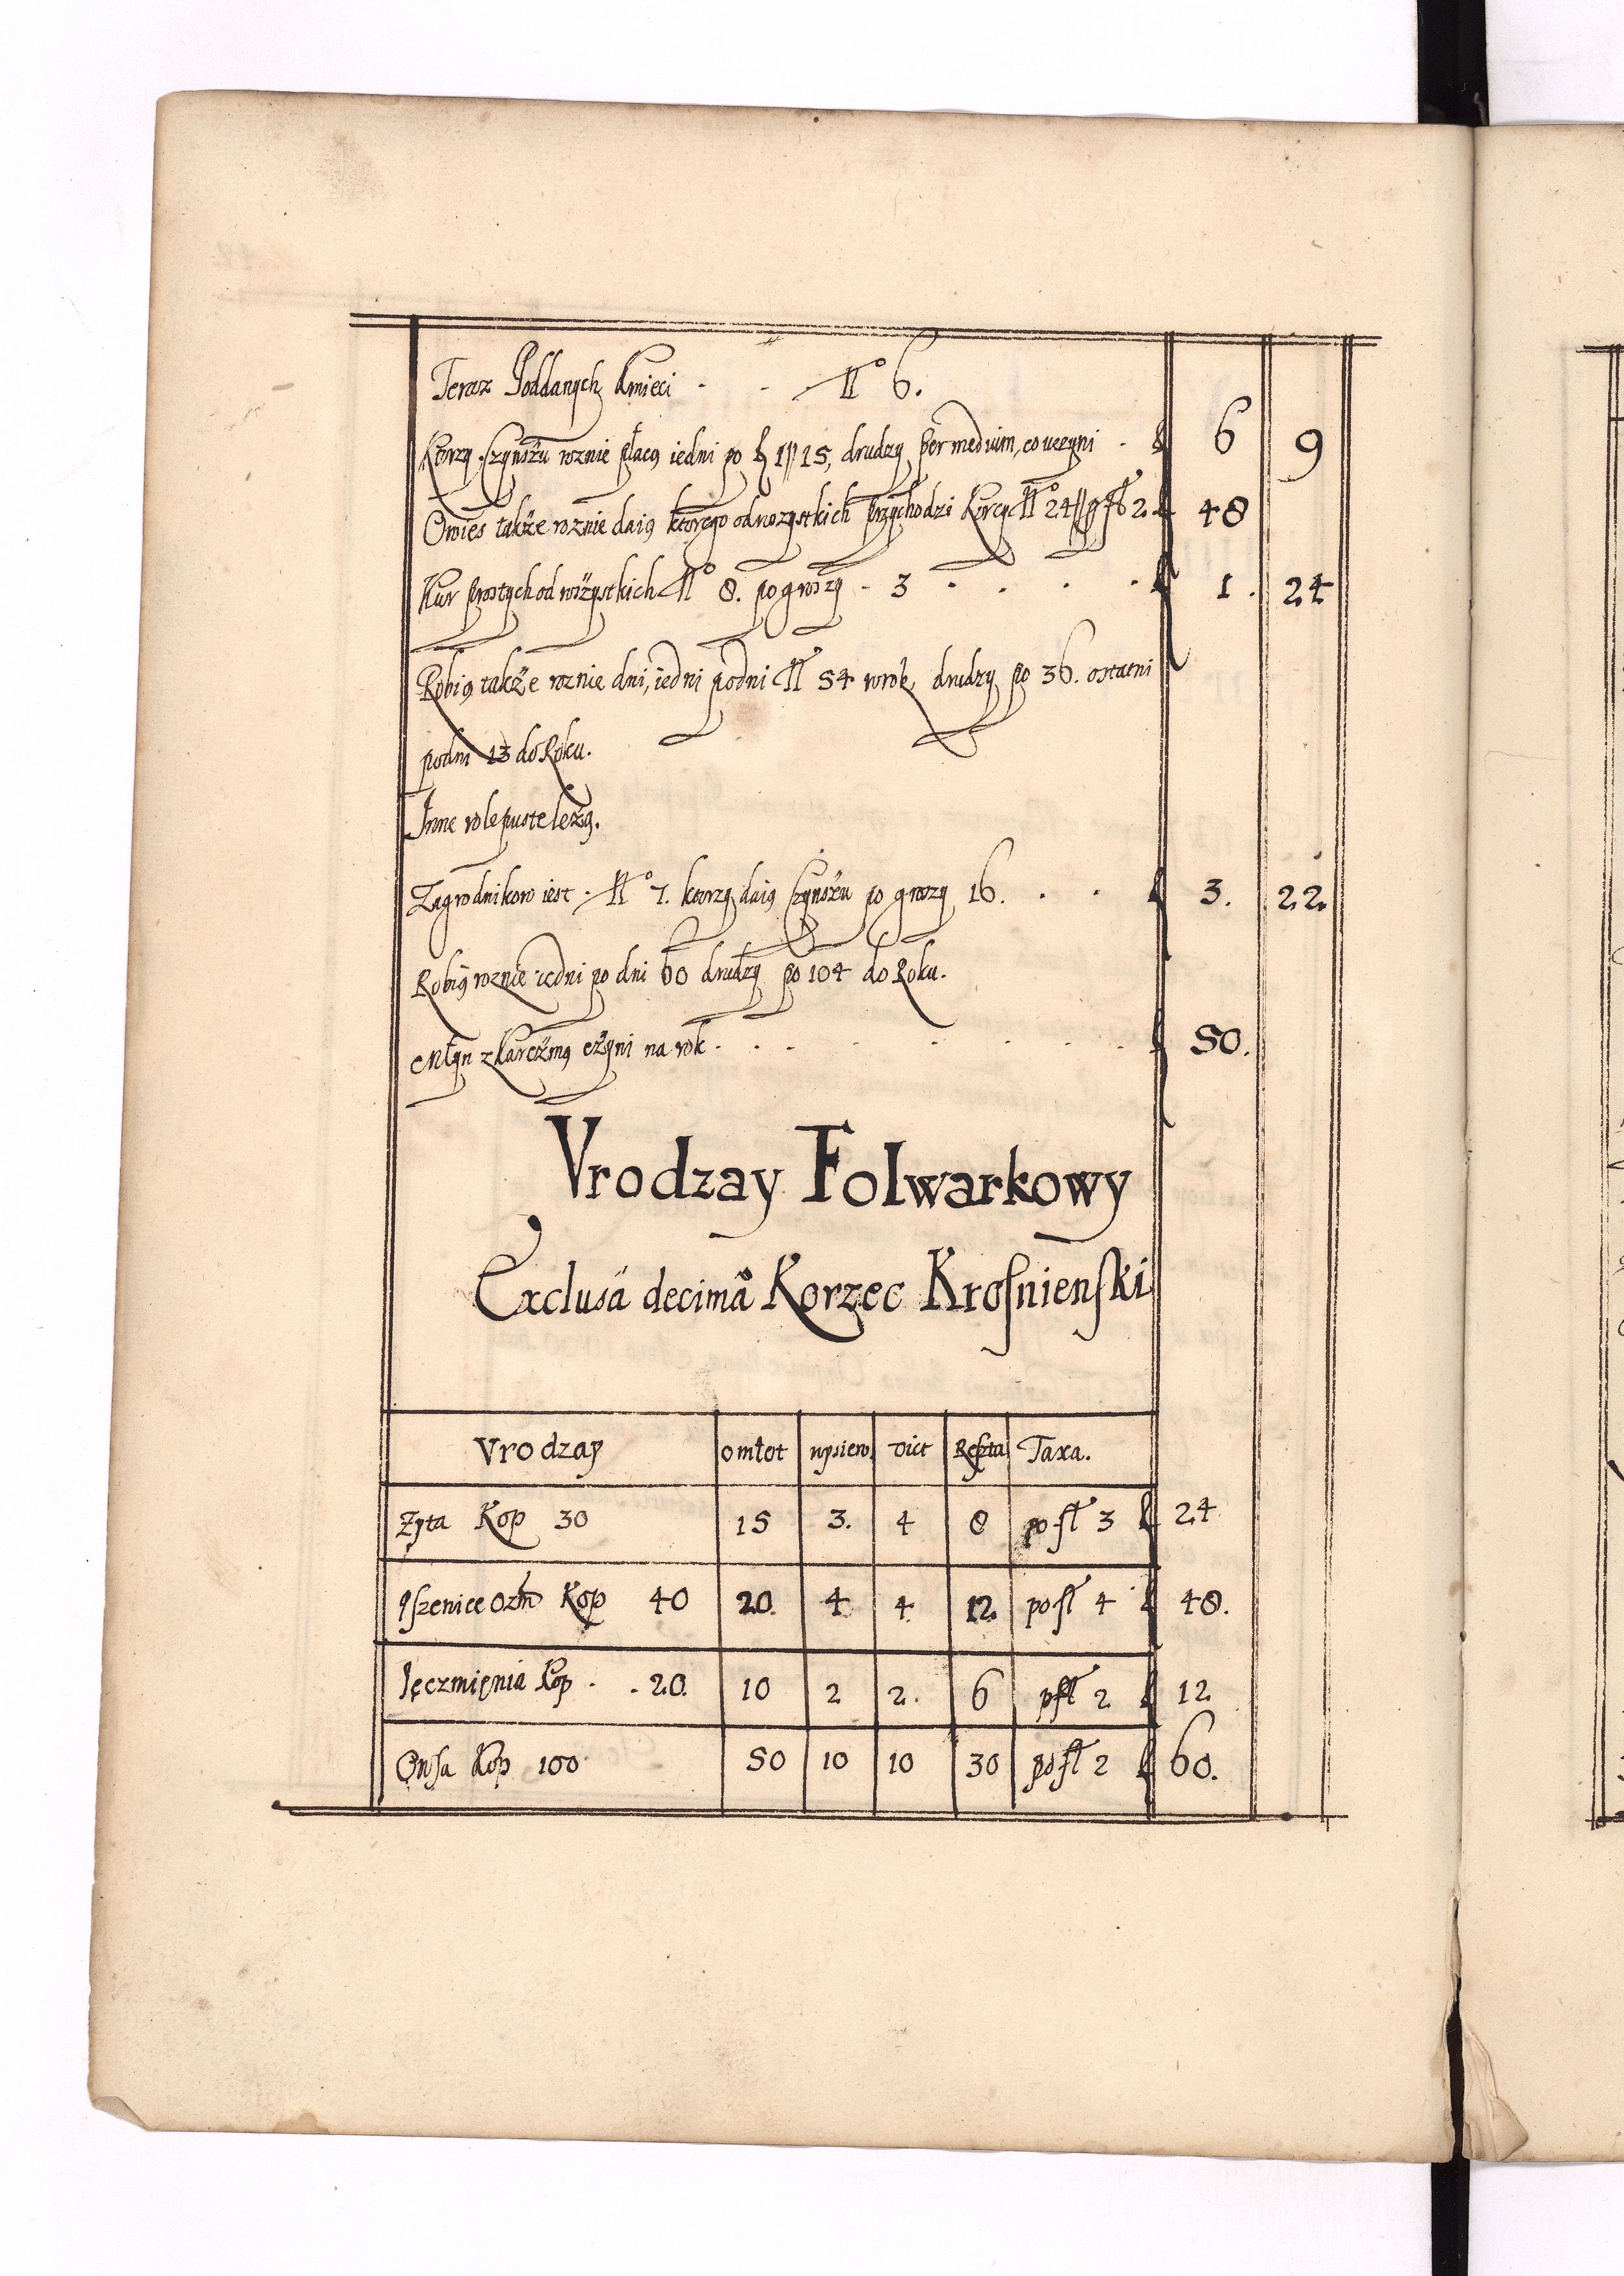 Teraz Poddanych Kmieci . . . No 6.
Ktorzy Czynszu roznie płacą iedni po 1 15, drudzy per medium, co uczyni . 6 9
Owies także roznie daią ktorego od wszystkich przychodzi Korcy No 24 fl 2. 48
Kur prostych od wszystkich No 8. po groszy - 3 . . . . 1. 24
Robią także roznie dni, iedni po dni No 54 w rok, drudzy po 36. ostatni
po dni 13 do Roku.
Inne role puste leżą.
Zagrodnikow iest . No 7. ktorzy daią Czynszu po groszy 16. . . 3. 22.
Robią roznie iedni po dni 60 drudzy po 104 do Roku.
Młyn z Karczmą czyni na rok . . . . . . . 50.
Vrodzay Folwarkowy
Exclusa decima Korzec Krosnienski
Vrodzay omłot wysiew vict Reszta Taxa.
Zyta Kop 30 15 3. 4 8 po fl 3 24
Pszenice ozm Kop 40 20. 4 4 12. po fl 4 48.
Ięczmięnia Kop . . 20. 10 2 2. 6 po fl 2 12
Owsa Kop 100 50 10 10 30 po fl 2 60.